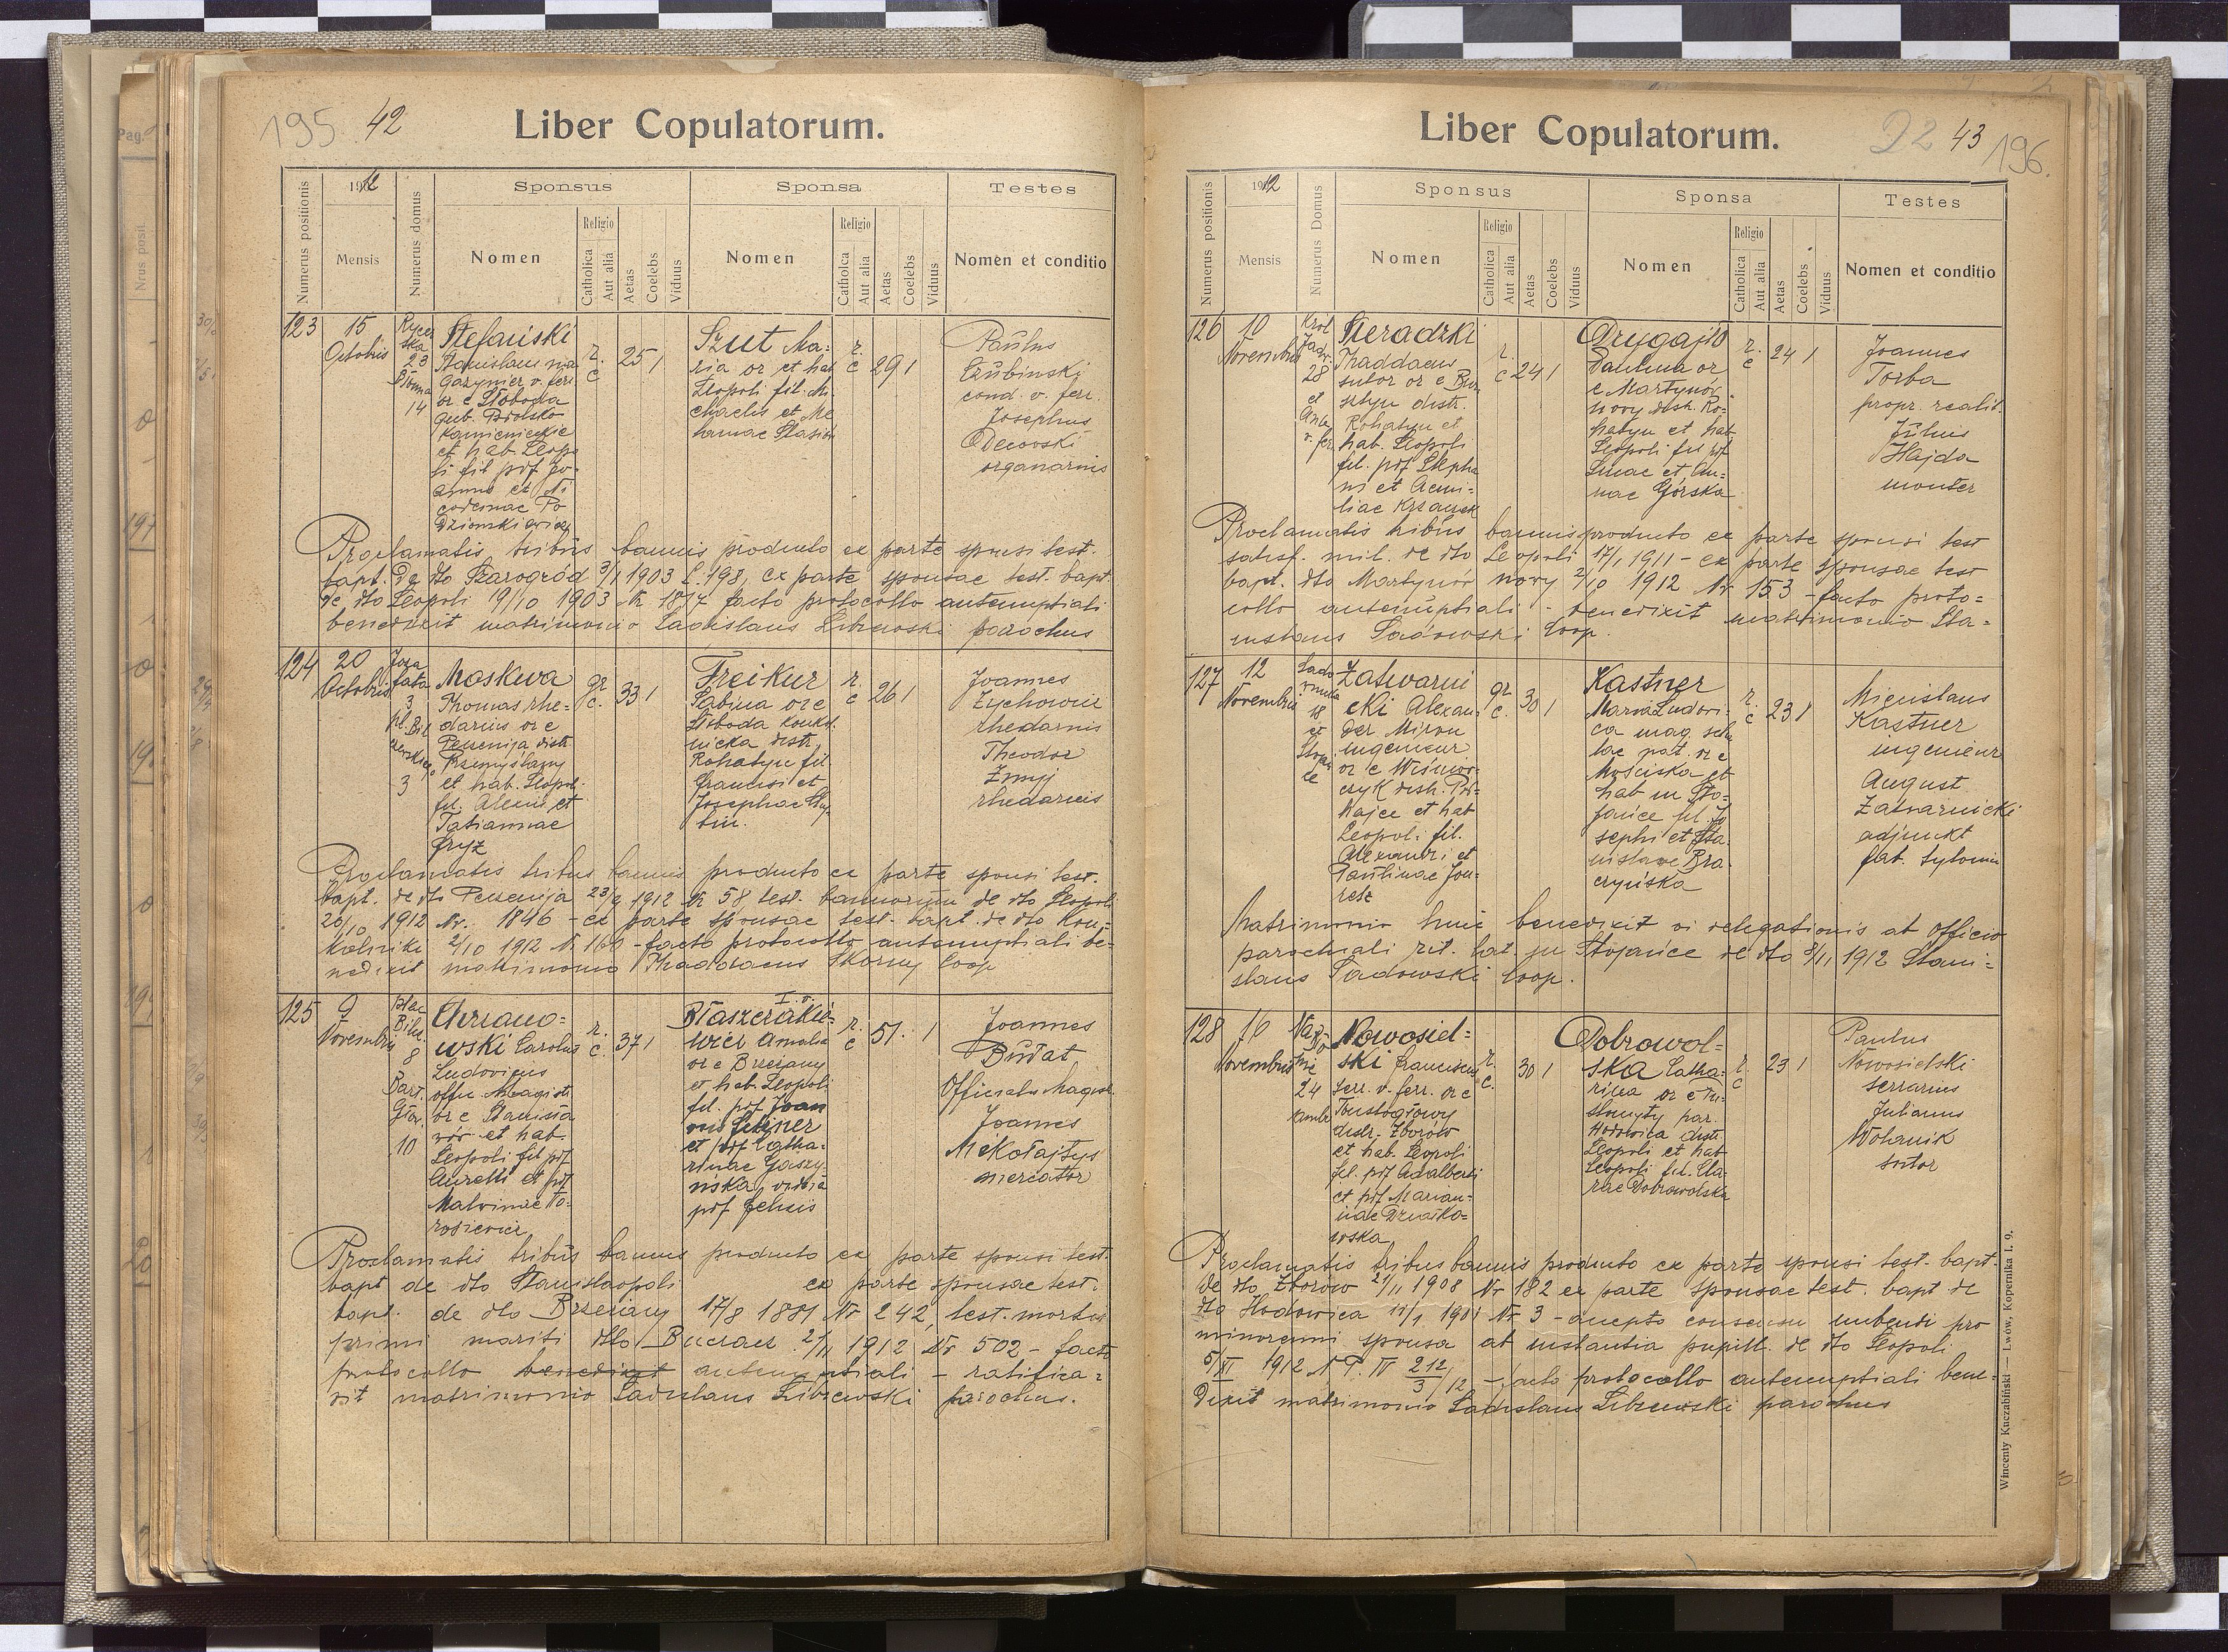 195 42
Liber Copulatorum.
Numerus positionis
1912
Mensis
Numerus domus
Sponsus
Nomen
Religio
Catholica
Aut alia
Aetas
Coelebs
Viduus
Sponsa
Nomen
Religio
Catholca
Aut alia
Aetas
Coelebs
Viduus
Testes
Nomen et conditio
123
15
Octobris
Rycer
ska
23
Błonna
14
Stefański
Stanislaus ma
gazynier v. ferr.
or e Słoboda
gub.
Kamienieckie
et hab. Leopo
li fil. pdf Jo-
annis et Ni
codemae Po
r.
c
25 1
Szut Ma-
ria or et hab
Leopoli fil. Mi
chaelis et Me
laniae Stasiów
r.
c
29 1
Paulus
cond. v. ferr.
Josephus
organarius
Proclamatis tribus bannis producto ex parte sponsi test.
bapt. de dto Szarogród 3/1 1903 L. 198, ex parte sponsae test. bapt.
de dto Leopoli 19/10 1903 Nr 1817 facto protocollo antenuptiali
benedixit matrimonio Ladislaus Librewski parochus
124
20
Octobris
Joza
fata
3
pl. Bil
czewskiego
3
Moskwa
Thomas rhe-
darius or e
Pecenija distr.
Przemyślany
et hab. Leopol.
fil. Alexii et
Tatiannae
Gryz
gr
c.
33 1
Freikur
Sabina or e
Słoboda konkol
nicka distr.
Rohatyn fil.
Francisci et
Josephae
r.
c
26 1
Joannes
Zychowicz
rhedarius
Theodor
Żmyj
rhedarius
Proclamatis tribus bannis producto ex parte sponsi test.
bapt. de dto Pecenija 23/9 1912 Nr 58 test. bannorum de dto Leopoli
20/10 1912 Nr. 1846 - ex parte sponsae test. bapt. de dto Kon-
kolniki 2/10 1912 N. 160 - facto protocollo antenuptiali be-
nedixit matrimonio Thaddaeus Skorny Coop
125
9
Novembris
plac
Bilcz.
8
Bart.
Głow.
10
Chrzano-
wski Carolus
Ludovicus
offic. Magistr
or e Stanisła
wów et hab.
Leopoli fil pdf
Aurelii et pdf
Malvinae To-
rosiewicz
r.
c.
37 1
I. v.
Błaszczakie-
wicz Amalia
or e Brzeżany
et hab. Leopoli
fil. pdf Joan
nis
et pdf Catha-
rinae Gaszy-
nska, vidua
pdf Felicis
r.
c
51. 1
Joannes
Budat
Officialis Magistr.
Joannes
Mikołajtys
mercator
Proclamatis tribus bannis producto ex parte sponsi test.
bapt de dto Stanislaopoli ex parte sponsae test.
bapt. de dto Brzeżany 17/8 1881 Nr 242, test. mortis
primi mariti dto Buczacz 2/11 1912 Nr 502 - facto
protocollo benedixit antenuptiali - ratifica-
vit matrimonio Ladislaus Librewski parochus.
D2 43 196.
Liber Copulatorum.
Numerus positionis
1912
Mensis
Numerus Domus
Sponsus
Nomen
Religio
Catholica
Aut alia
Aetas
Coelebs
Viduus
Sponsa
Nomen
Religio
Catholica
Aut alia
Aetas
Coelebs
Viduus
Testes
Nomen et conditio
126
10
Novembris
Król
Jadw.
28
et
v. ferr.
Sieradzki
Thaddaeus
sutor or e Bur
sztyn distr.
Rohatyn et
hab. Leopoli
fil. pdf Stepha
ni et Aemi-
liae
r.
c
24 1
Drugajło
Paulina or
e Martynów
nowy distr. Ro-
hatyn et hab
Leopoli fil pdf
Lucae et An-
nae Górska
r.
c
24 1
Joannes
Torba
propr. realit.
Julius
Hajda
monter
Proclamatis tribus bannis producto ex parte sponsi test
satisf. mil. de dto Leopoli 17/1 1911 - ex parte sponsae test
bapt. dto Martynów nowy 2/10 1912 Nr 153 - facto proto-
collo antenuptiali - benedixit matrimonio Sta-
nislaus Sadowski Coop.
127
12
Novembris
Sado
wnicka
18
et
Stoja
ce
Zatwarni
cki Alexan-
der Miron
ingenieur
or e Wiśniow-
czyk distr. Pod-
hajce et hab
Leopoli fil.
Alexandri et
Paulinae Jou-
retz
gr
c.
30 1
Kastner
Maria Ludovi-
ca mag. scho
lae nat. or e
Mościska et
hab in Sto-
janice fil. Jo
sephi et Sta
nislavae Bra-
czyńska
r.
c
23 1
Micislaus
Kastner
ingenieur
August
Zatwarnicki
adjunkt
fab. tytoniu
Matrimonio huic benedixit vi delegationis ab officio
parochiali rit. lat. in Stojanice de dto 8/11 1912 Stani-
slaus Sadowski Coop.
128
16
Novembris
24
Nowosiel-
ski Franciscus
serr. v. ferr. or e
Toustogłowy
distr. Zborów
et hab. Leopoli
fil. pdf Adalberti
et pdf Marian-
nae Dziadko-
wska
r.
c.
30 1
Dobrowol-
ska Catha-
rina or e
par.
Hodowica distr.
Leopoli et hab
Leopoli fil. Cla-
rae Dobrowolska
r.
c
23 1
Paulus
Nowosielski
serrarius
Julianus
Wohanik
sutor
Proclamatis tribus bannis producto ex parte sponsi test. bapt.
de dto Zborów 21/11 1908 Nr 182 ex parte sponsae test. bapt de
dto Hodowica 11/1 1901 Nr 3 - accepto consensu nubendi pro
minorenni sponsa ab instantia pupill. de dto Leopoli
5/XI 1912 N P. IV 212/3/12 - facto protocollo antenuptiali bene-
dixit matrimonio Ladislaus Librewski parochus
Wincenty Kuczabiński — Lwów, Kopernika l. 9.